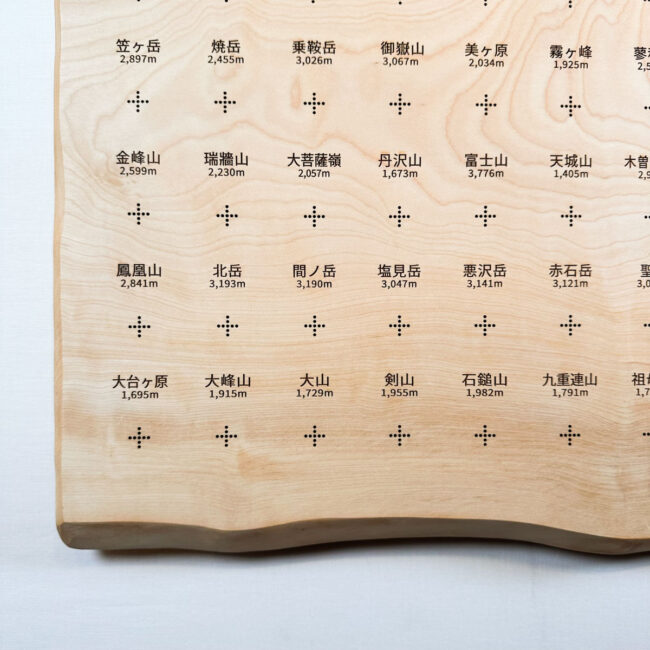 笠ヶ岳 焼岳 乗鞍岳 御嶽山 美ヶ原 霧ヶ峰
2,897m 2,455m 3,026m 3,067m 2,034m 1,925m
金峰山 瑞牆山 大菩薩嶺 丹沢山 富士山 天城山 木曽
2,599m 2,230m 2,057m 1,673m 3,776m 1,405m
鳳凰山 北岳 間ノ岳 塩見岳 悪沢岳 赤石岳 聖
2,841m 3,193m 3,190m 3,047m 3,141m 3,121m
大台ヶ原 大峰山 大山 剣山 石鎚山 九重連山 祖
1,695m 1,915m 1,729m 1,955m 1,982m 1,791m